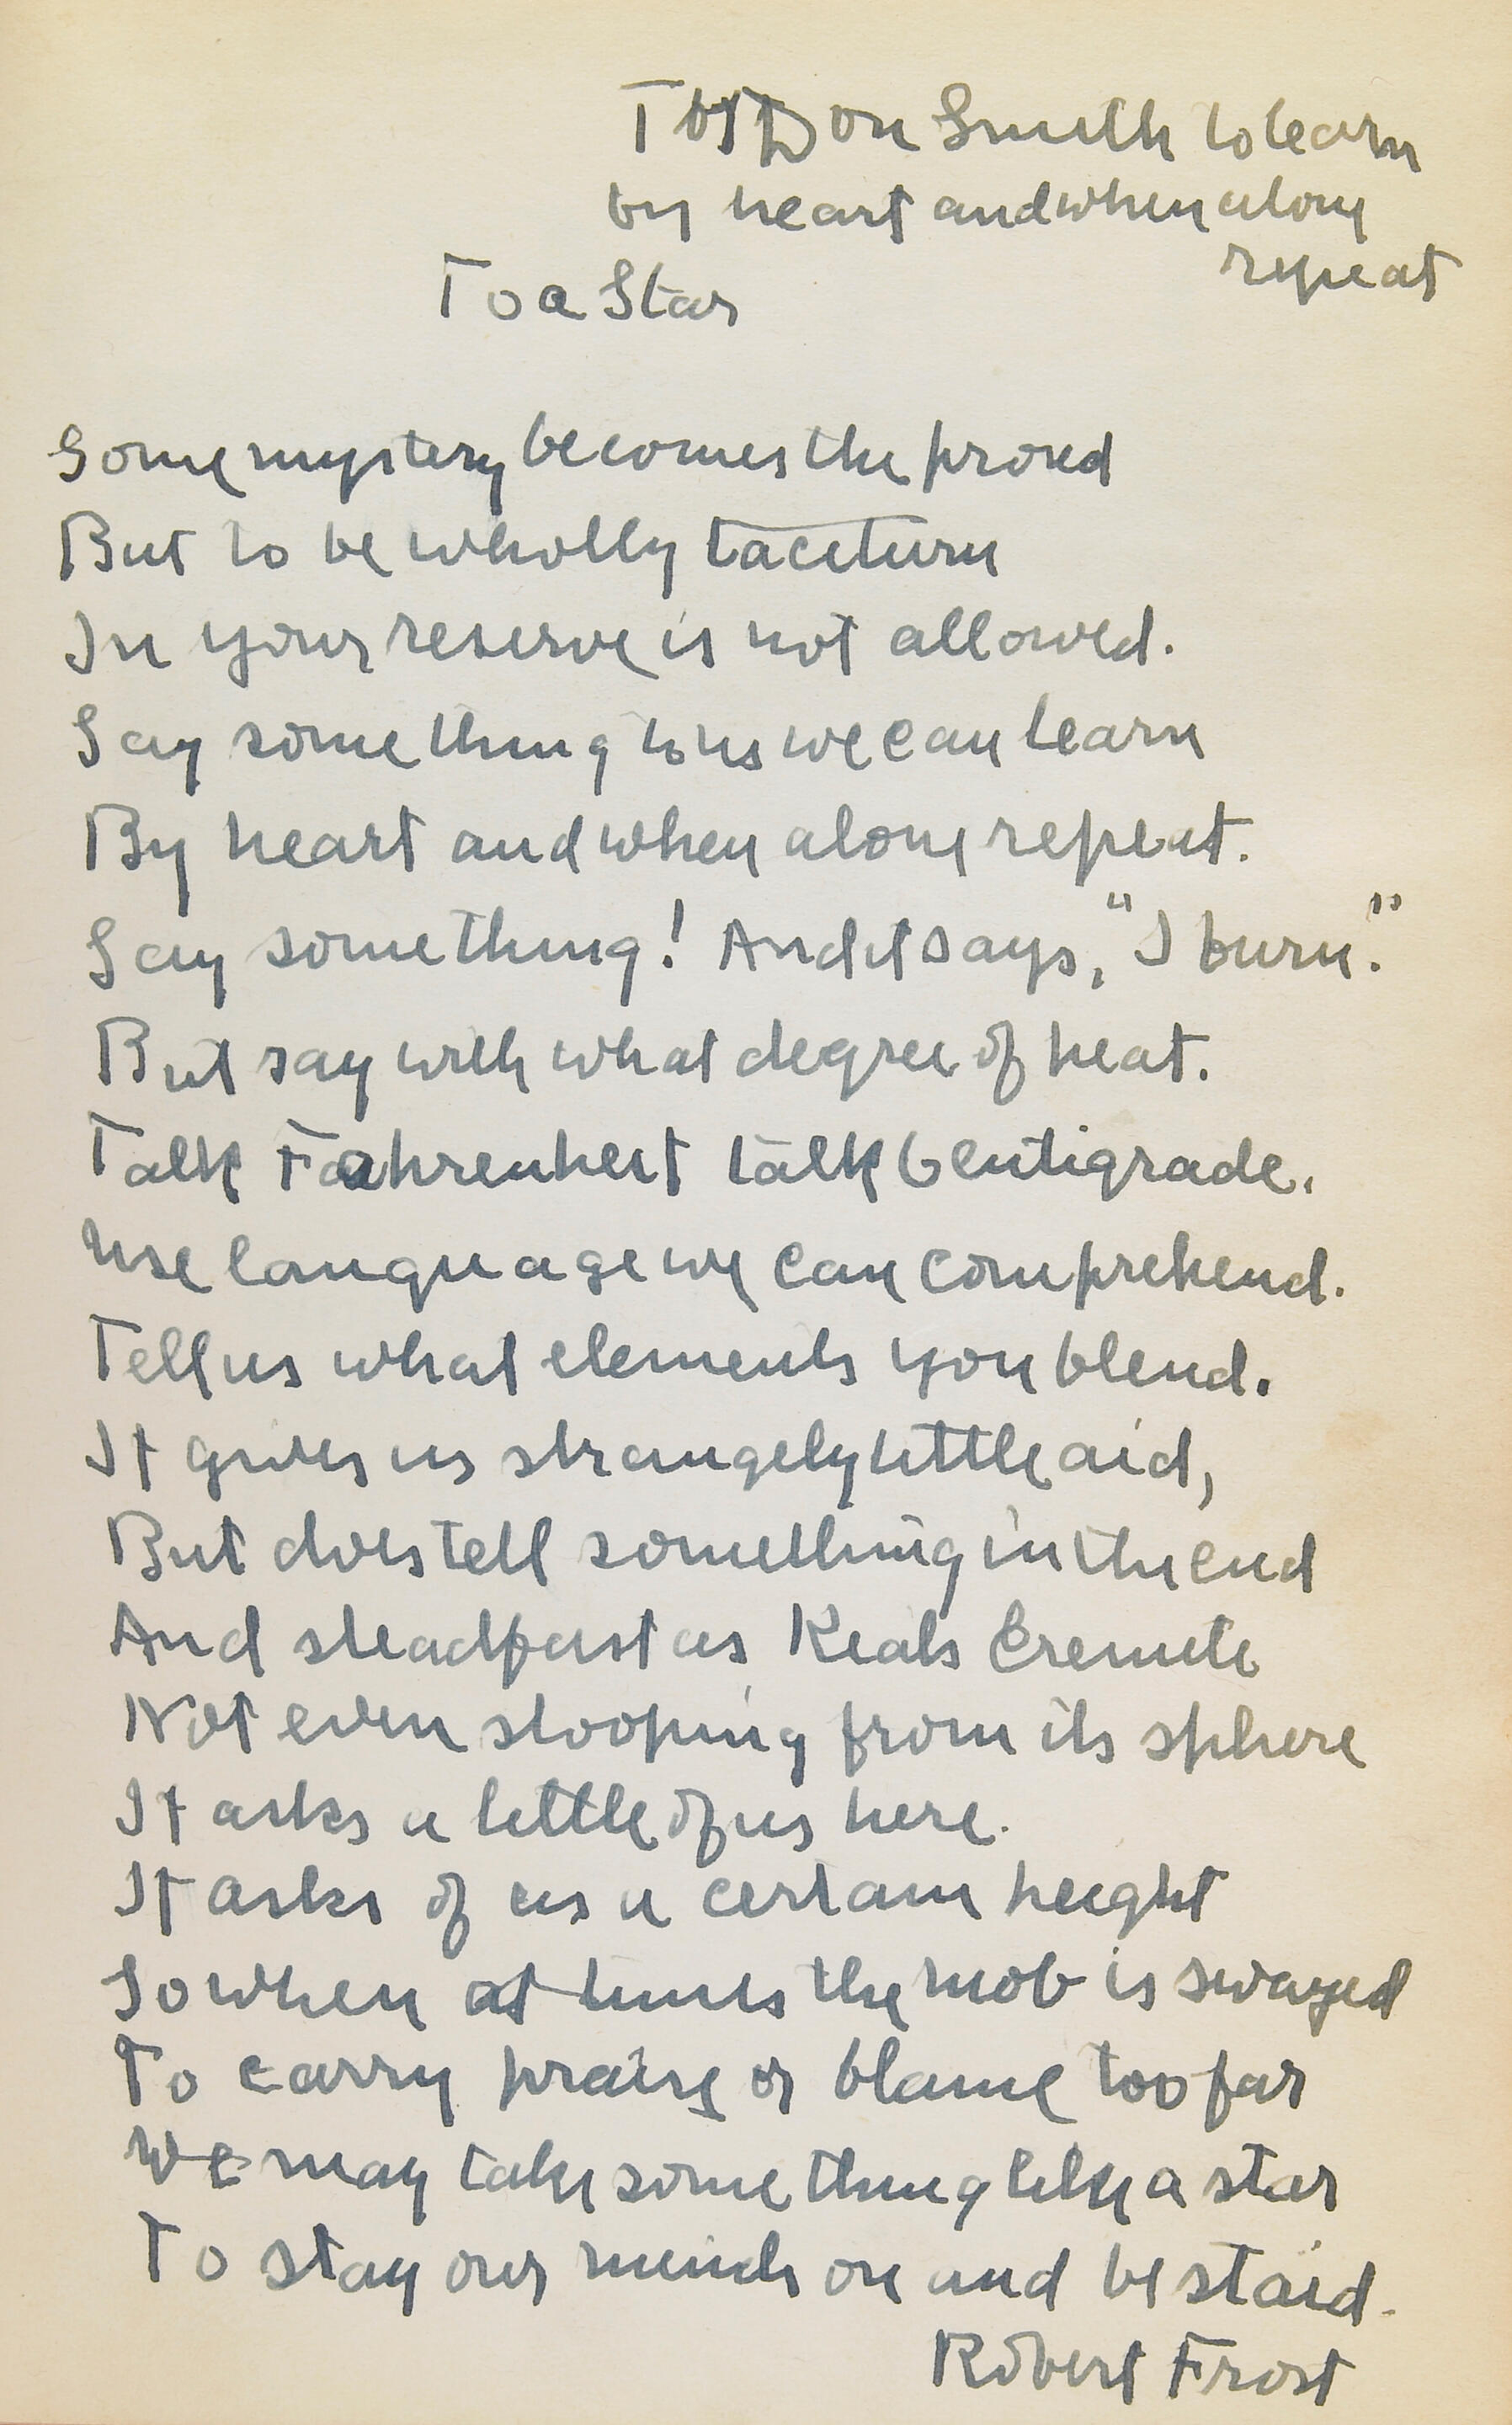 For Don Smith to learn
by heart and when alone
repeat
To a Star
Some mystery becomes the proud
But to be wholly taceturn
In your reserve is not allowed.
Say something to us we can learn
By heart and when alone repeat.
Say something! And it says, "I burn."
But say with what degree of heat.
Talk Fahrenheit talk Centigrade.
Use language we can comprehend.
Tell us what elements you blend.
It gives us strangely little aid,
But does tell something in the end
And steadfast as Keats Eremite
Not even stooping from its sphere
It asks a little of us here.
It asks of us a certain height
So when at times the mob is swayed
To carry praise or blame too far
We may take something like a star
To stay our minds on and be staid.
Robert Frost